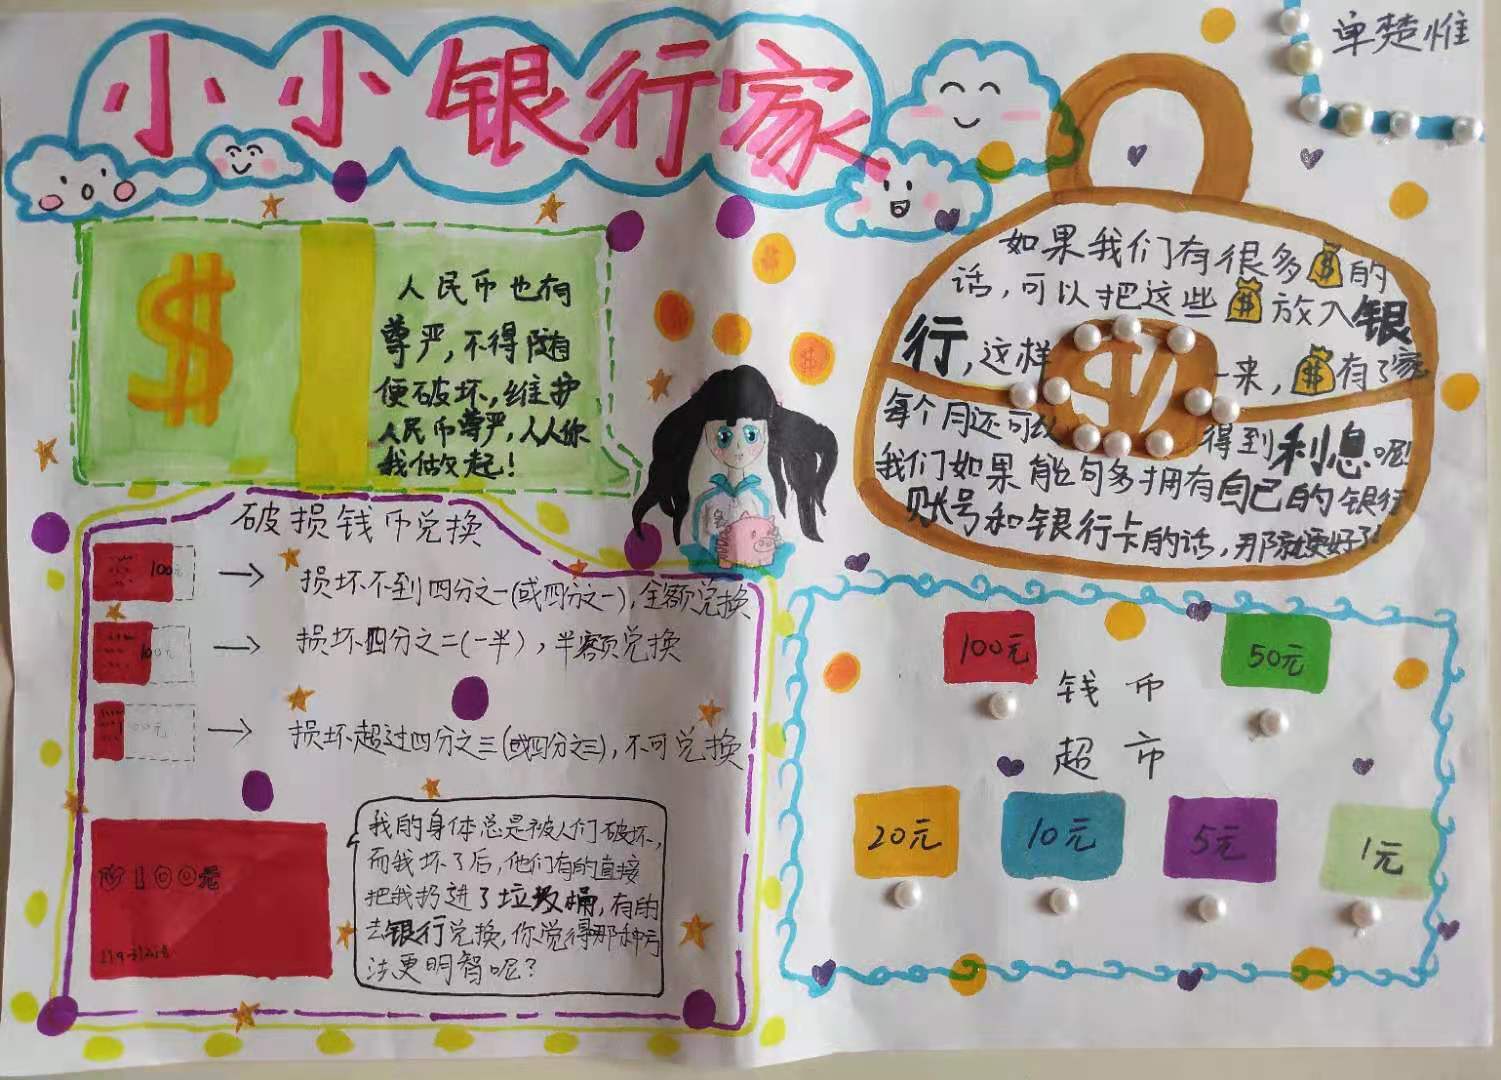 小小银行家
单楚惟
人民币也有
尊严,不得随
便破坏,维护
人民币尊严,人人你
我做起!
如果我们有很多的
话,可以把这些放入银
行,这样一来,有了家
每个月还可以得到利息呢!
我们如果能句多拥有自己的银行
账号和银行卡的话,那就更好了!
破损钱币兑换
100元
损坏不到四分之一(或四分之一),全额兑换
100元
损坏四分之二(一半),半额兑换
00元
损坏超过四分之三(或四分之三),不可兑换
100元
我的身体总是被人们破坏,
而我坏了后,他们有的直接
把我扔进了垃圾桶,有的
去银行兑换,你觉得那种方
法更明智呢?
100元
50元
钱币
超市
20元
10元
5元
1元